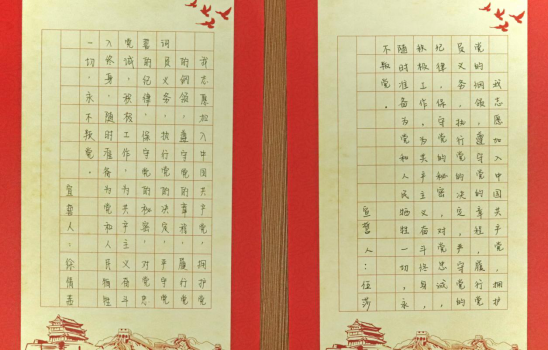 入党誓词
我志愿加入中国共产党，拥护党
的纲领，遵守党的章程，履行党
员义务，执行党的决定，严守党
的纪律，保守党的秘密，对党忠
诚，积极工作，为共产主义奋斗
终身，随时准备为党和人民牺牲
一切，永不叛党。
宣誓人：徐倩
我志愿加入中国共产党，拥护
党的纲领，遵守党的章程，履行党
员义务，执行党的决定，严守党的
纪律，保守党的秘密，对党忠诚，
积极工作，为共产主义奋斗终身，
随时准备为党和人民牺牲一切，永
不叛党。
宣誓人：伍莎